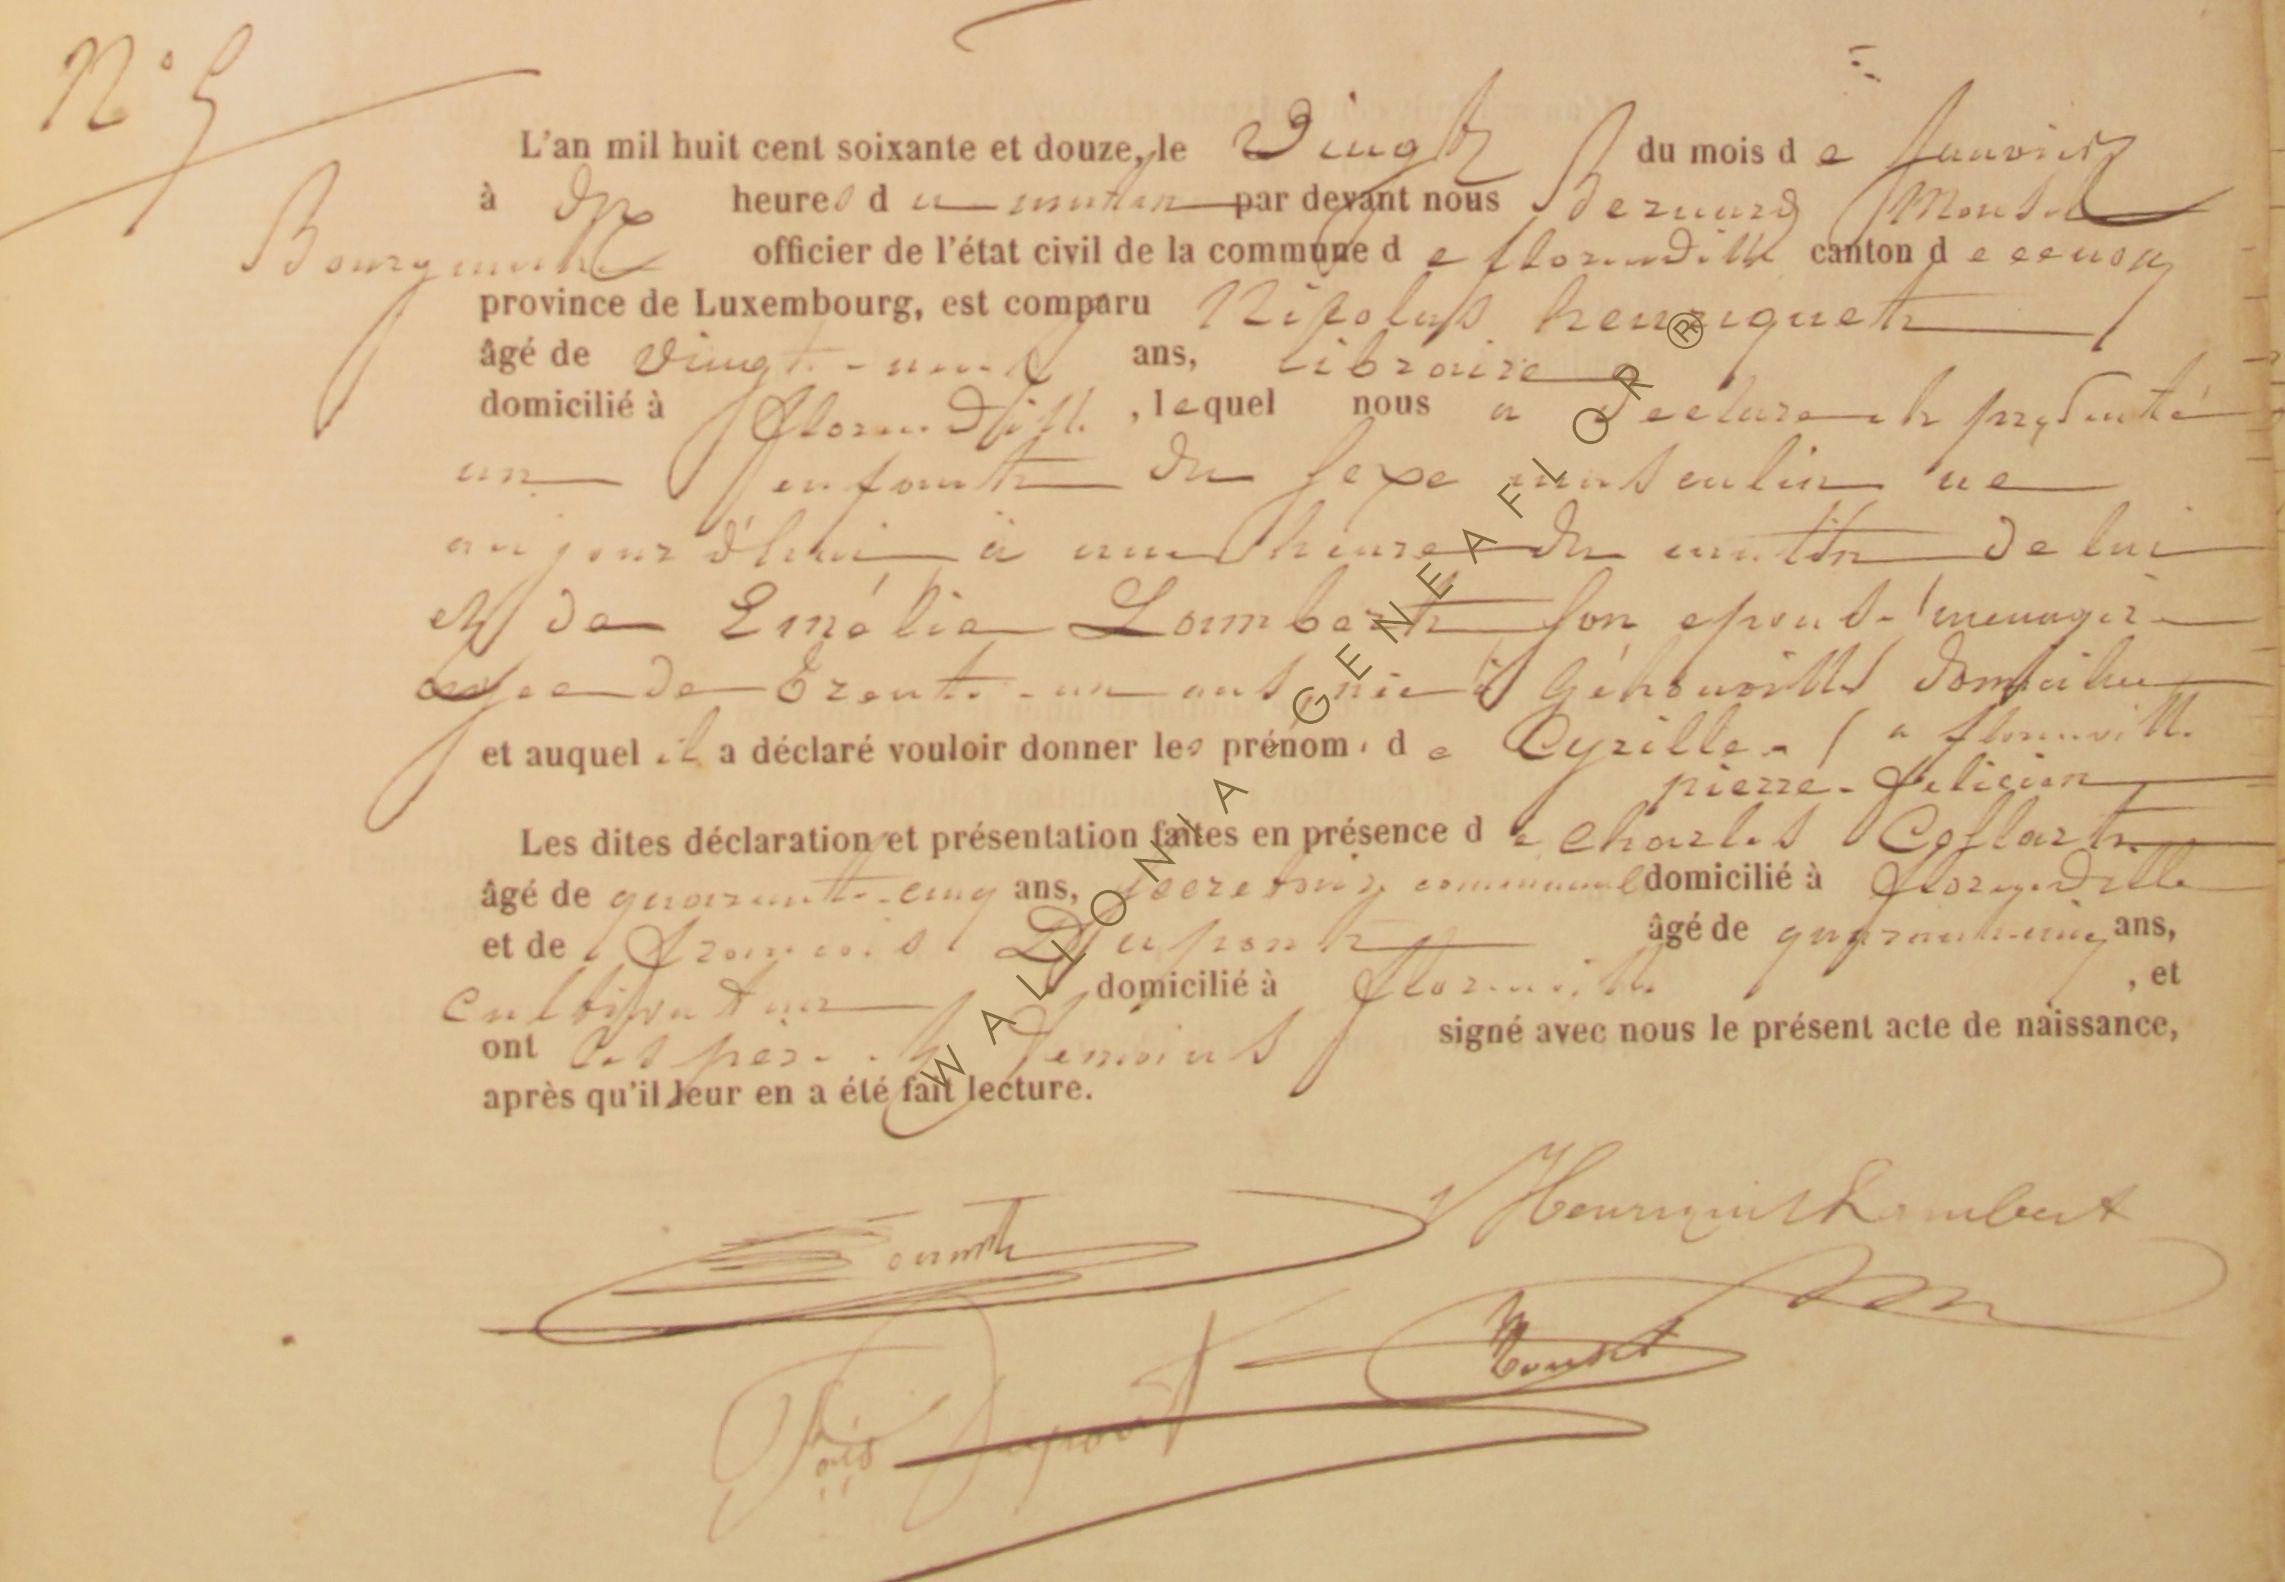 N° 5
L'an mil huit cent soixante et douze, le Vingt du mois de Janvier
à dix heures du matin par devant nous Bernard Monset
Bourgmestre officier de l'état civil de la commune de florenville canton d
province de Luxembourg, est comparu Nicolas henriquet
âgé de vingt-neuf ans, libraire
domicilié à florenville, lequel nous a declare et présenté
un enfant du sexe masculin né
aujourd'hui à une heure du matin de lui
et de Emélie Lambert son epouse menagere
agee de Trente-un ans, née à domiciliee
à florenville
et auquel il a déclaré vouloir donner les prénom de Cyrille-
pierre-felicien
Les dites déclaration et présentation faites en présence de Charles Collart
âgé de quarante-cinq ans, secretaire communal domicilié à florenville
et de francois Dupont âgé de quarante-cinq ans,
cultivateur domicilié à florenville, et
ont les père et temoins signé avec nous le présent acte de naissance,
après qu'il leur en a été fait lecture.
Lambert
Monset
Fçois Dupont
WALLONIA GENEAFLOR ®